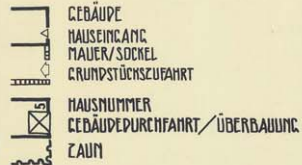 GEBÄUDE
HAUSEINGANG
MAUER/SOCKEL
GRUNDSTÜCKSZUFAHRT
5 HAUSNUMMER
GEBÄUDEDURCHFAHRT/ÜBERBAUUNG
ZAUN